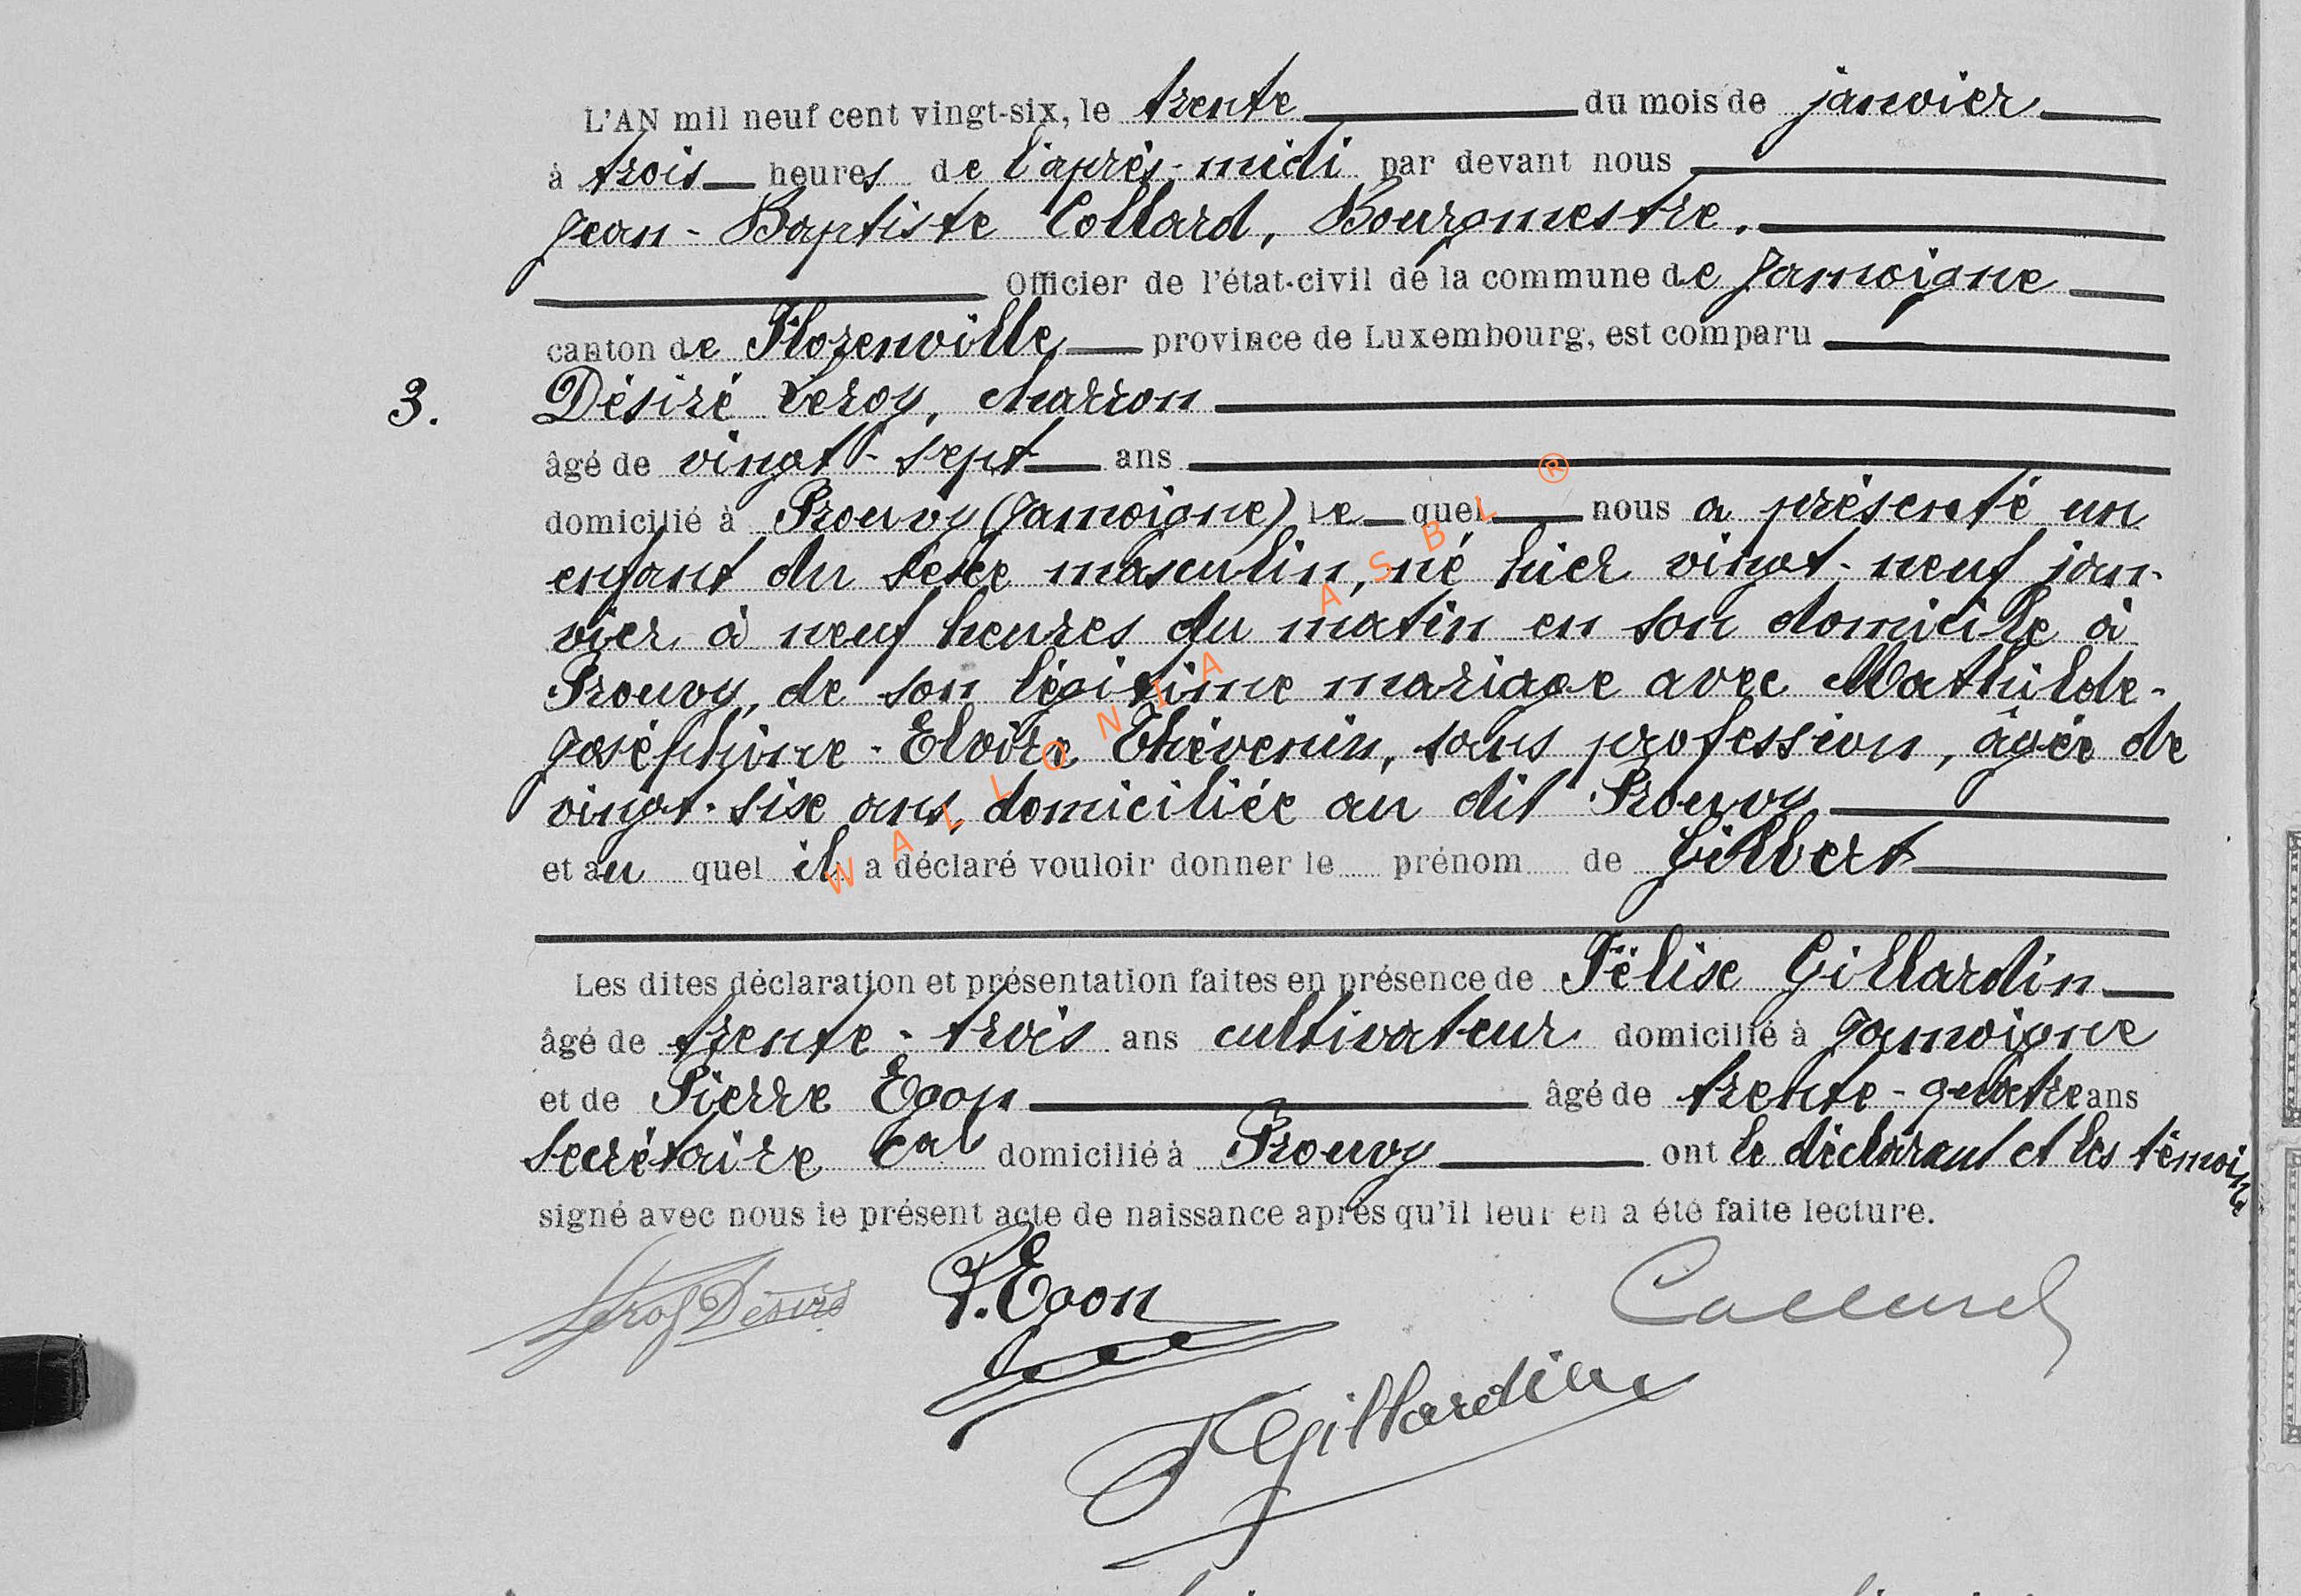 L'AN mil neuf cent vingt-six, le trente du mois de janvier
à trois heures de l'après-midi par devant nous
Jean-Baptiste Collard, Bourgmestre.
Officier de l'état-civil de la commune de Jamoigne
canton de Florenville province de Luxembourg, est comparu
3. Désiré Leroy, charron
âgé de vingt-sept ans
domicilié à Prouvy (Jamoigne) lequel nous a présenté un
enfant du sexe masculin, né hier vingt-neuf jan-
vier à neuf heures du matin en son domicile à
Prouvy, de son légitime mariage avec Mathilde-
Joséphine-Elvire Thévenin, sans profession, âgée de
vingt-six ans, domiciliée au dit Prouvy
et au quel il a déclaré vouloir donner le prénom de Gilbert
Les dites déclaration et présentation faites en présence de Félix Gillardin
âgé de trente-trois ans cultivateur domicilié à Jamoigne
et de Pierre Egon âgé de trente-quatre ans
secrétaire cal domicilié à Prouvy ont le déclarant et les témoins
signé avec nous le présent acte de naissance après qu'il leur en a été faite lecture.
Leroy Désiré P. Egon Collard
F Gillardin
WALLONIA ASBL ®